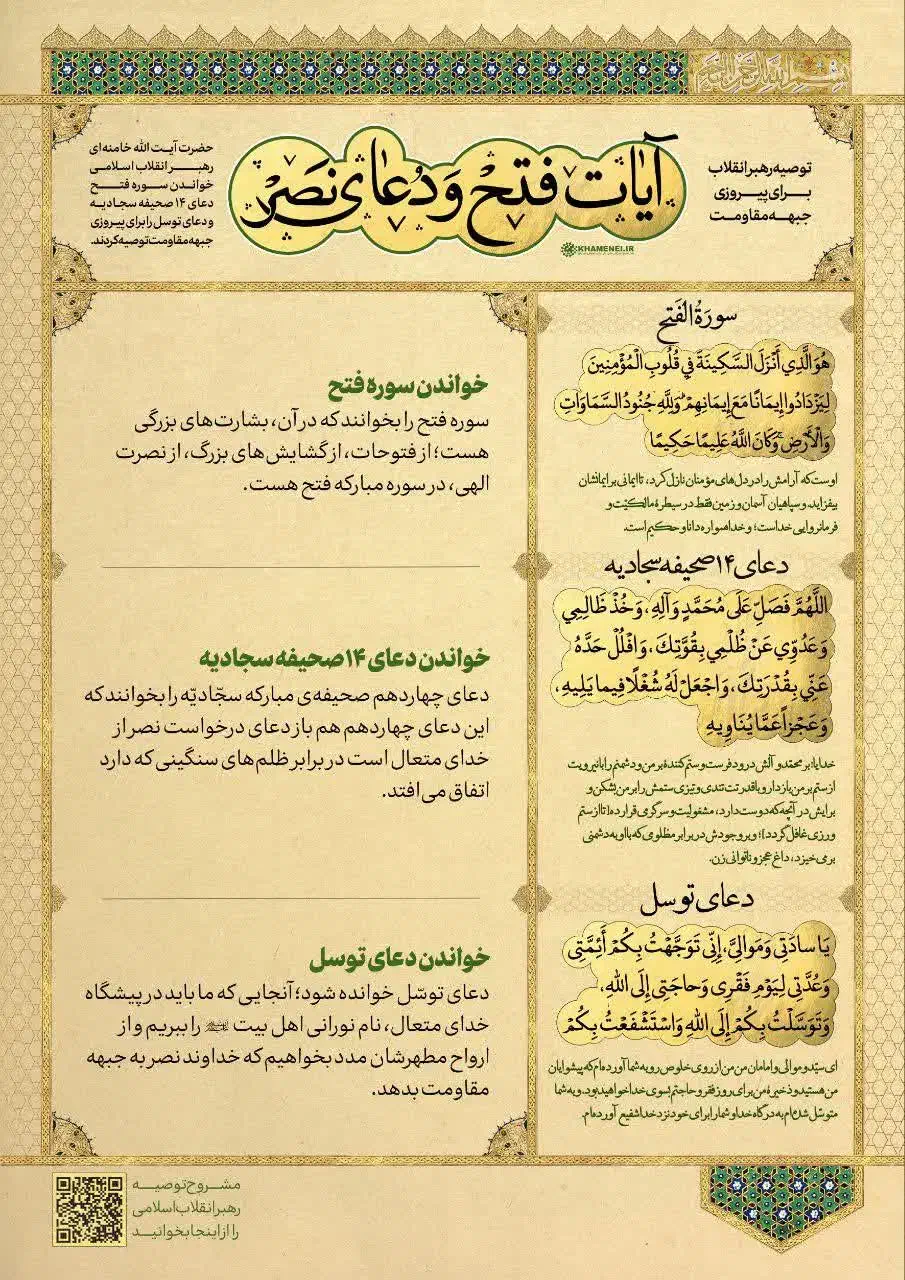 بسم الله الرحمن الرحیم
توصیه رهبر انقلاب
برای پیروزی
جبهه مقاومت
آیات فتح و دعای نصر
KHAMENEI.IR
حضرت آیت الله خامنه‌ای
رهبر انقلاب اسلامی
خواندن سوره فتح
دعای ۱۴ صحیفه سجادیه
و دعای توسل را برای پیروزی
جبهه مقاومت توصیه کردند.
سورَةُ الفَتح
هُوَ الَّذِي أَنْزَلَ السَّكِينَةَ فِي قُلُوبِ الْمُؤْمِنِينَ
لِيَزْدَادُوا إِيمَانًا مَعَ إِيمَانِهِمْ ۗ وَلِلَّهِ جُنُودُ السَّمَاوَاتِ
وَالْأَرْضِ ۚ وَكَانَ اللَّهُ عَلِيمًا حَكِيمًا
اوست که آرامش را در دل‌های مؤمنان نازل کرد، تا ایمانی بر ایمانشان
بیفزاید. و سپاهیان آسمان و زمین فقط در سیطرهٔ مالکیّت و
فرمانروایی خداست؛ و خدا همواره دانا و حکیم است.
خواندن سوره فتح
سوره فتح را بخوانند که در آن، بشارت‌های بزرگی
هست؛ از فتوحات، از گشایش‌های بزرگ، از نصرت
الهی، در سوره مبارکه فتح هست.
دعای ۱۴ صحیفه سجادیه
اللَّهُمَّ فَصَلِّ عَلَى مُحَمَّدٍ وَآلِهِ، وَخُذْ ظَالِمِي
وَعَدُوِّي عَنْ ظُلْمِي بِقُوَّتِكَ، وَافْلُلْ حَدَّهُ
عَنِّي بِقُدْرَتِكَ، وَاجْعَلْ لَهُ شُغْلًا فِيما يَلِيهِ،
وَعَجْزاً عَمَّا يُنَاوِيهِ
خدایا! بر محمّد و آلش درود فرست و ستم کنندهٔ بر من و دشمنم را با نیرویت
از ستم بر من باز دار و با قدرتت تندی و تیزی ستمش را بر من بشکن و
برایش در آنچه که دوست دارد، مشغولیت و سرگرمی قرار ده [تا از ستم
ورزی غافل گردد]؛ و بر وجودش در برابر مظلومی که با او به دشمنی
برمی‌خیزد، داغ عجز و ناتوانی زن.
خواندن دعای ۱۴ صحیفه سجادیه
دعای چهاردهم صحیفه‌ی مبارکه سجّادیّه را بخوانند که
این دعای چهاردهم هم باز دعای درخواست نصر از
خدای متعال است در برابر ظلم‌های سنگینی که دارد
اتفاق می‌افتد.
دعای توسل
يَا سادَتِي وَمَوالِيَّ، إِنِّي تَوَجَّهْتُ بِكُمْ أَئِمَّتِي
وَعُدَّتِي لِيَوْمِ فَقْرِي وَحاجَتِي إِلَى اللهِ،
وَتَوَسَّلْتُ بِكُمْ إِلَى اللهِ وَاسْتَشْفَعْتُ بِكُمْ
ای سیّد و موالی و امامان من من از روی خلوص رو به شما آورده‌ام که پیشوایان
من هستید و ذخیرهٔ من برای روز فقر و حاجتم بسوی خدا خواهید بود. و به شما
متوسّل شده‌ام به درگاه خدا و شما را برای خود نزد خدا شفیع آورده‌ام.
خواندن دعای توسل
دعای توسّل خوانده شود؛ آنجایی که ما باید در پیشگاه
خدای متعال، نام نورانی اهل بیت را ببریم و از
ارواح مطهرشان مدد بخواهیم که خداوند نصر به جبهه
مقاومت بدهد.
مشروح توصیه
رهبر انقلاب اسلامی
را از اینجا بخوانید